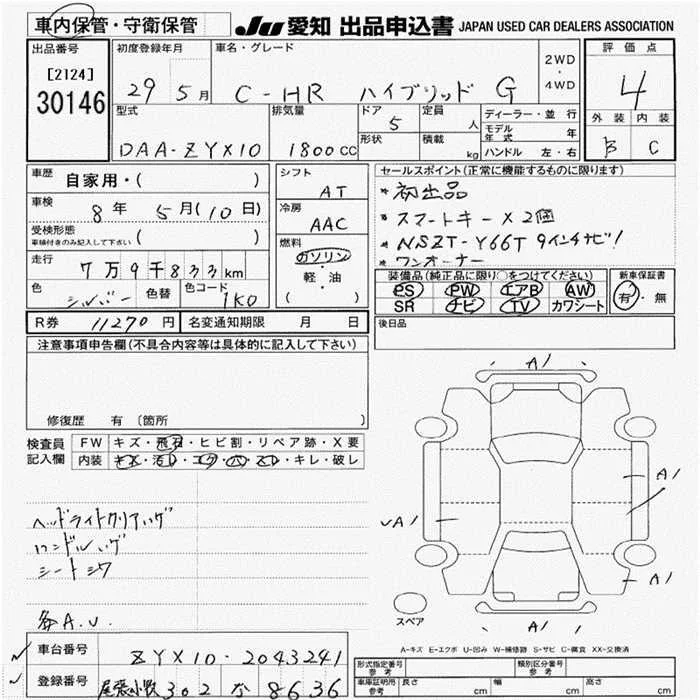 車内保管・守衛保管
JU 愛知 出品申込書 JAPAN USED CAR DEALERS ASSOCIATION
出品番号
[2124]
30146
初度登録年月
29 5月
車名・グレード
C-HR ハイブリッド G
2WD
・
4WD
評価点
4
外装 内装
B C
型式
DAA-ZYX10
排気量
1800cc
ドア
5
形状
定員
人
積載
kg
ディーラー・並行
モデル年式 年
ハンドル 左・右
車歴
自家用・( )
車検
8年 5月(10日)
受検形態
車検付きのみ記入して下さい ( )
走行
7万9千833km
色
シルバー
色替
色コード
1K0
シフト
AT
冷房
AAC
燃料
ガソリン
・
軽・油
( )
セールスポイント(正常に機能するものに限ります)
* 初出品
* スマートキー×2個
* NSZT-Y66T 9インチナビ!
* ワンオーナー
装備品(純正品に限り○をつけてください)
PS PW エアB AW
SR ナビ TV カワシート
新車保証書
有・無
R券 11270円
名変通知期限 月 日
後日品
注意事項申告欄(不具合内容等は具体的に記入して下さい)
修復歴 有 〔箇所 〕
検査員
記入欄
FW キズ・飛石・ヒビ割・リペア跡・X要
内装 キズ・汚レ・コゲ・穴・スレ・キレ・破レ
ヘッドライトクリアハゲ
ハンドルハゲ
シートシワ
各A.U.
A1
A1
A1
A1
A1
スペア
A-キズ E-エクボ U-凹み W-補修跡 S-サビ C-腐食 XX-交換済
車台番号
ZYX10-2043241
登録番号
尾張小牧 302 な 8636
形式指定番号
参考
類別区分番号
参考
車庫証明用
参考
長さ cm
幅 cm
高さ cm